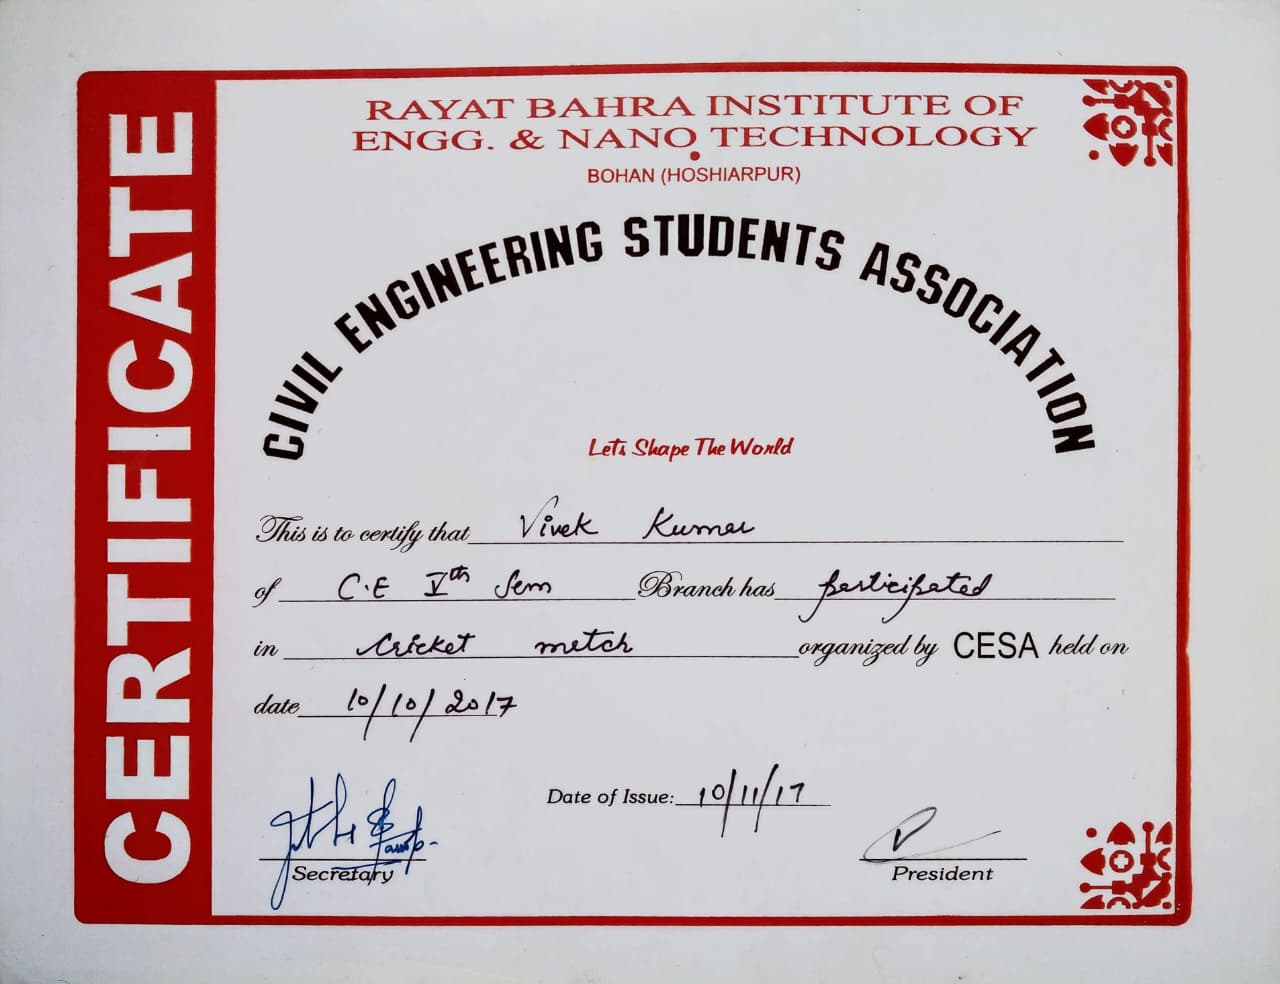 CERTIFICATE
RAYAT BAHRA INSTITUTE OF
ENGG. & NANO TECHNOLOGY
BOHAN (HOSHIARPUR)
CIVIL ENGINEERING STUDENTS ASSOCIATION
Lets Shape The World
This is to certify that Vivek Kumar
of C.E Vth Sem Branch has participated
in Cricket metch organized by CESA held on
date 10/10/2017
Date of Issue: 10/11/17
Secretary
President